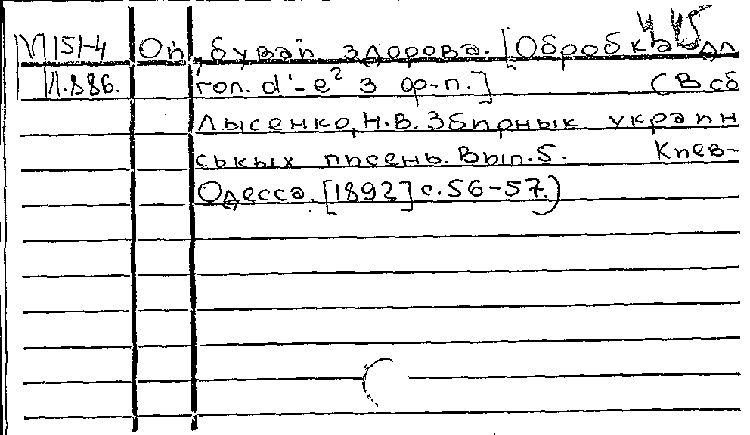 445
М 151-4 Ой, бувай здорова. [Обробка дл
Л.886. гол. d'-e² з ор-п.] (В сб
Лысенко, Н.В. Збирнык украин
ськых писень. Вып. 5. Киев-
Одесса. [1892] с. 56-57.)